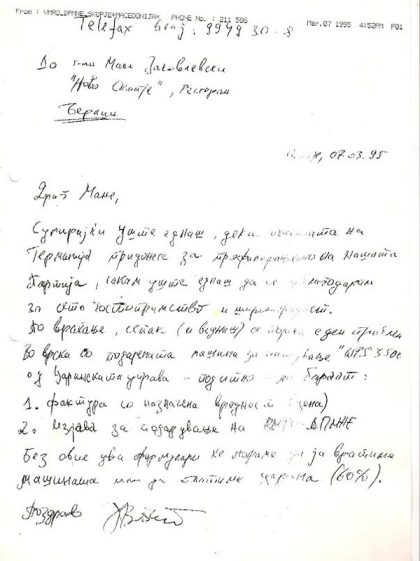 From : VMRO.DPMNE.SKOPJE*MACEDONIJA* PHONE No. : 211 586 Mar.07 1995 4:52PM P01
Telefax broj: 9949 30-8
До г-дин Мане Јаковлевски
"Ново Скопје", Ресторан
Берлин
07.03.95
Драг Мане,
Сумирајќи уште еднаш, дека на
Германија придонесе за на нашата
партија, сакам уште еднаш да се заблагодарам
за сето гостопримство и
По враќање, сепак (и веднаш) се еден проблем
во врска со подарената машина за "WPS 350"
од Царинската управа - бараат:
1. фактура со назначена вредност (цена)
2. Изјава за подарување на ВМРО-ДПМНЕ
Без овие два формулари ќе мораме да ја вратиме
машината или да платиме царина (60%).
Поздрав